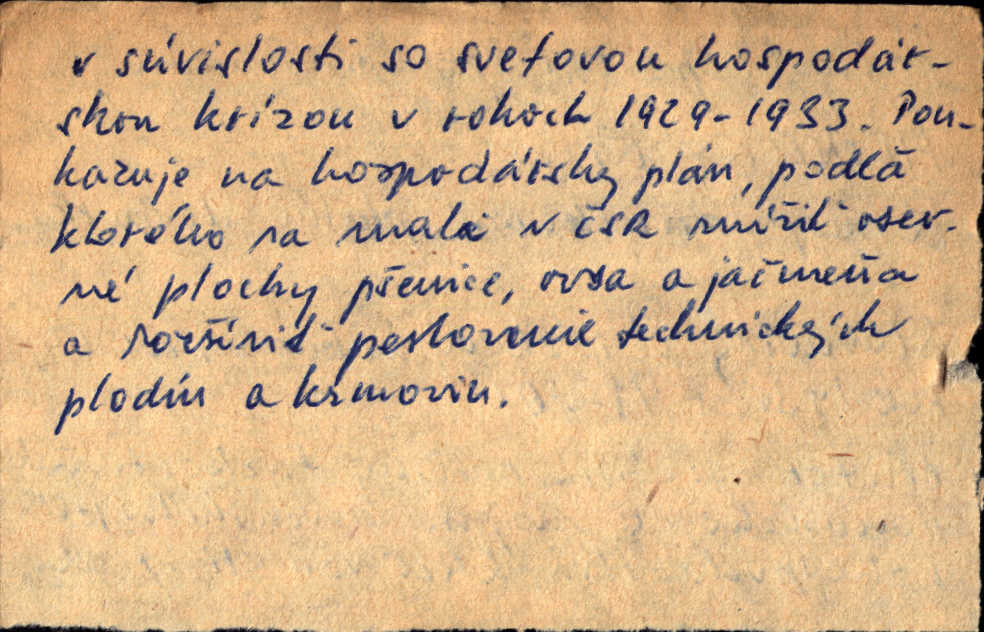 v súvislosti so svetovou hospodár-
skou krízou v rokoch 1929-1933. Pou-
kazuje na hospodársky plán, podľa
ktorého sa mala v ČSR znížiť osev-
né plochy pšenice, ovsa a jačmeňa
a rozšíriť pestovanie technických
plodín a krmovín.